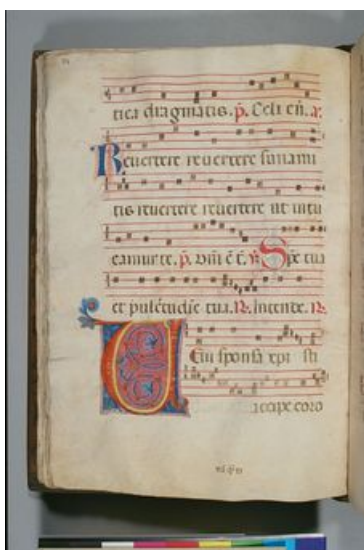 tica dragmatis. p. Celi en. a.
Revertere revertere sunami
tis revertere revertere ut intu
eamur te. p. Spe tua
et pulcritudine tua. R. Intende. R.
Veni sponsa xpi
accipe coro